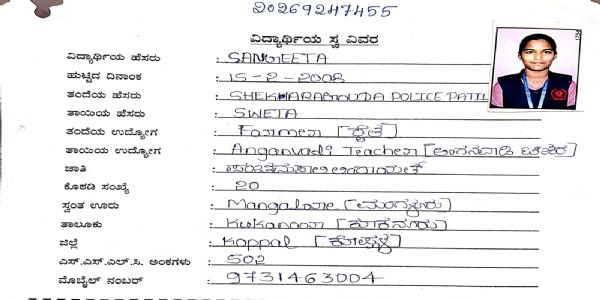 20269247455
ವಿದ್ಯಾರ್ಥಿಯ ಸ್ವ ವಿವರ
ವಿದ್ಯಾರ್ಥಿಯ ಹೆಸರು : SANGEETA
ಹುಟ್ಟಿದ ದಿನಾಂಕ : 15-2-2008
ತಂದೆಯ ಹೆಸರು : SHEKHARAGOUDA POLICE PATIL
ತಾಯಿಯ ಹೆಸರು : SWETA
ತಂದೆಯ ಉದ್ಯೋಗ : Farmer [ರೈತ]
ತಾಯಿಯ ಉದ್ಯೋಗ : Anganvadi Teacher [ಅಂಗನವಾಡಿ ಟೀಚರ]
ಜಾತಿ :
ಕೊಠಡಿ ಸಂಖ್ಯೆ : 20
ಸ್ವಂತ ಊರು : Mangalore [ಮಂಗಳೂರು]
ತಾಲೂಕು : Kukanoor [ಕುಕನೂರು]
ಜಿಲ್ಲೆ : Koppal [ಕೊಪ್ಪಳ]
ಎಸ್.ಎಸ್.ಎಲ್.ಸಿ. ಅಂಕಗಳು : 502
ಮೊಬೈಲ್ ನಂಬರ್ : 9731463004